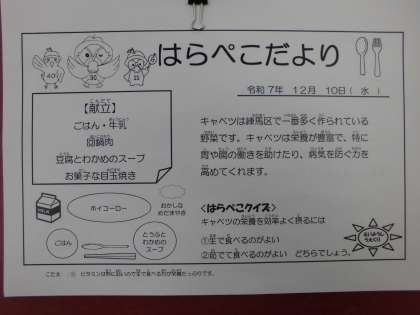 はらぺこだより
40
30
令和7年 12月 10日( 水 )
【献立】
ごはん・牛乳
回鍋肉
豆腐とわかめのスープ
お菓子な目玉焼き
キャベツは練馬区で一番多く作られている
野菜です。キャベツは栄養が豊富で、特に
胃や腸の働きを助けたり、病気を防ぐ力を
高めてくれます。
おかしな
めだまやき
ホイコーロー
ごはん
とうふと
わかめの
スープ
<はらぺこクイズ>
キャベツの栄養を効率よく摂るには
①生で食べるのがよい
②茹でて食べるのがよい どちらでしょう。